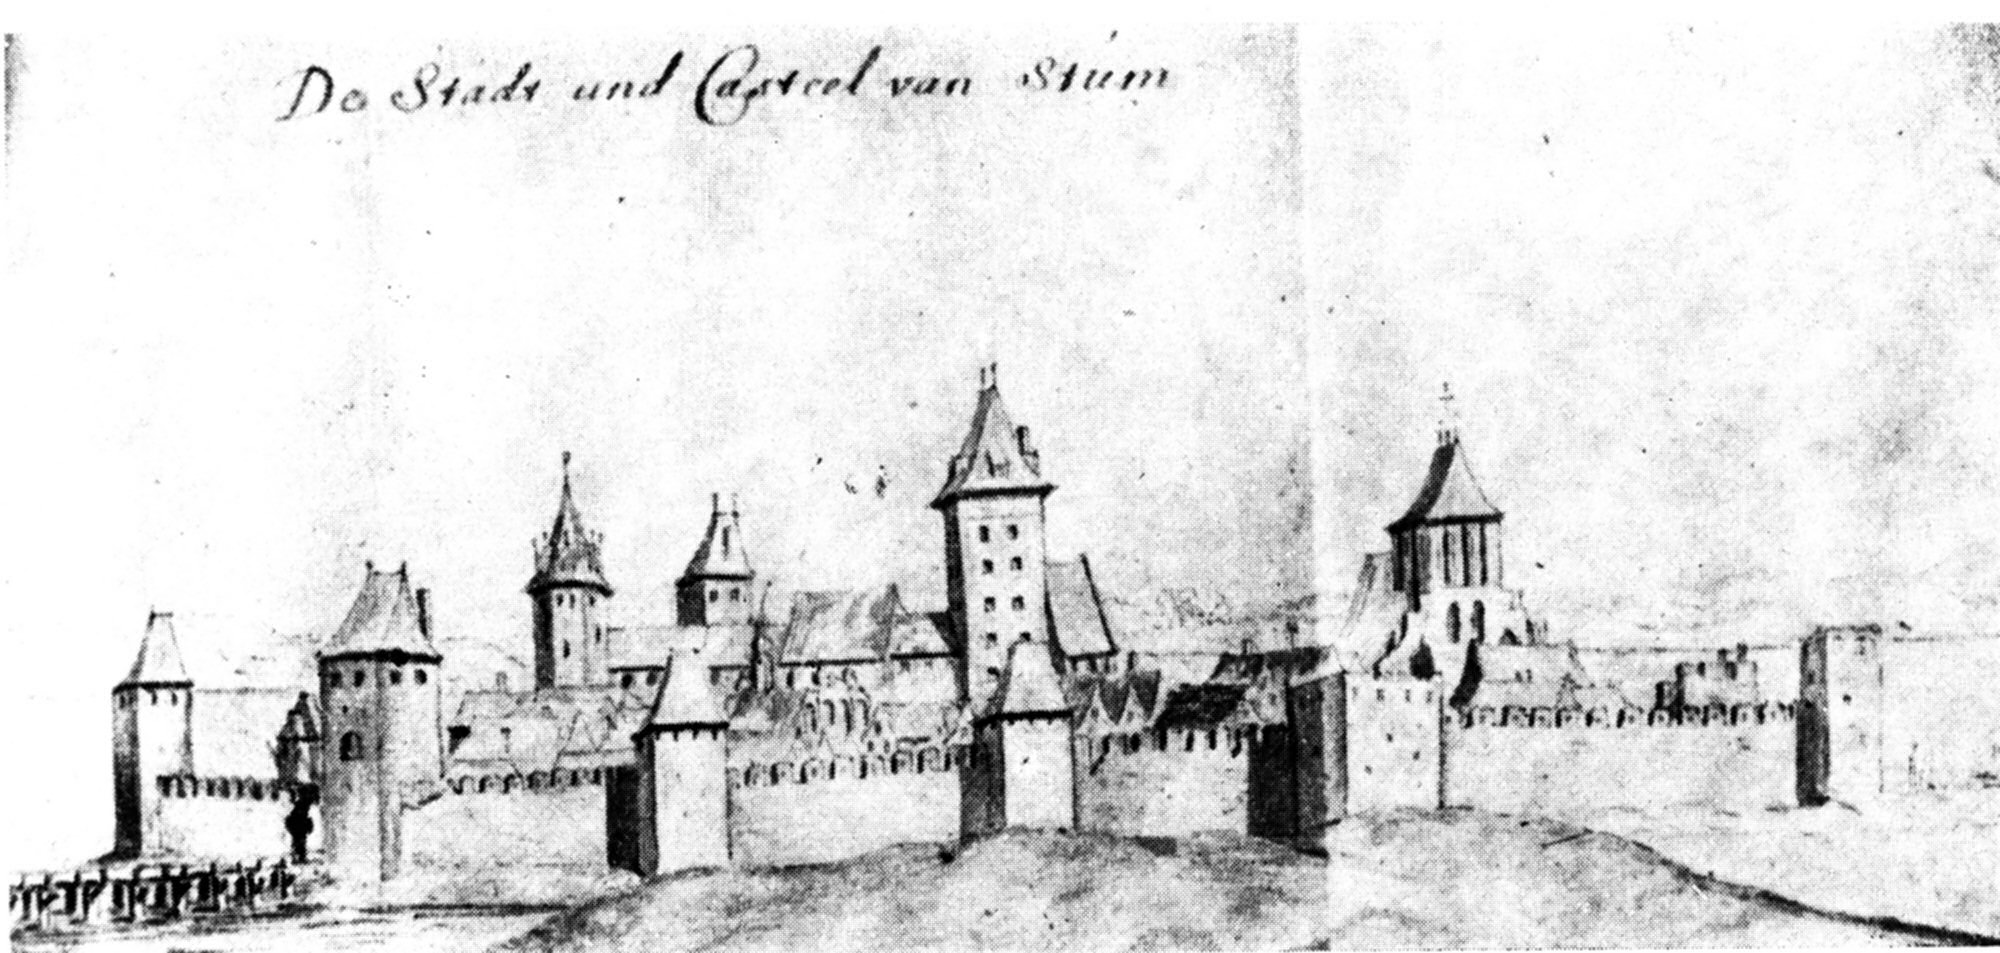 De Stadt und Casteel van Stúm